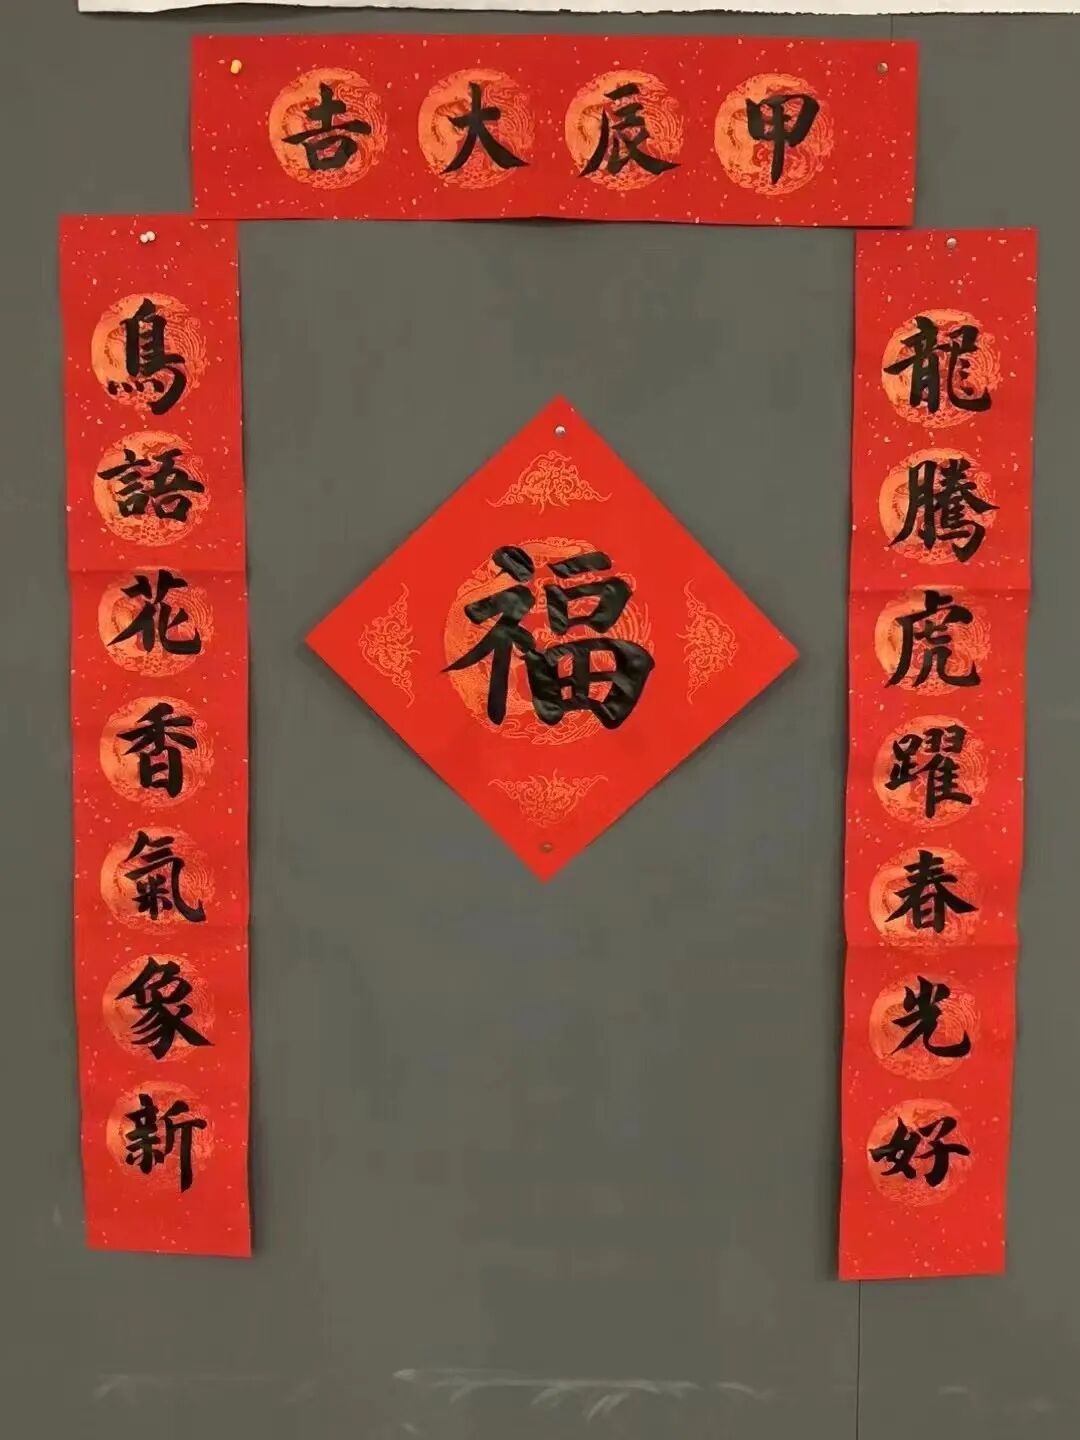 甲辰大吉
龍騰虎躍春光好
鳥語花香氣象新
福